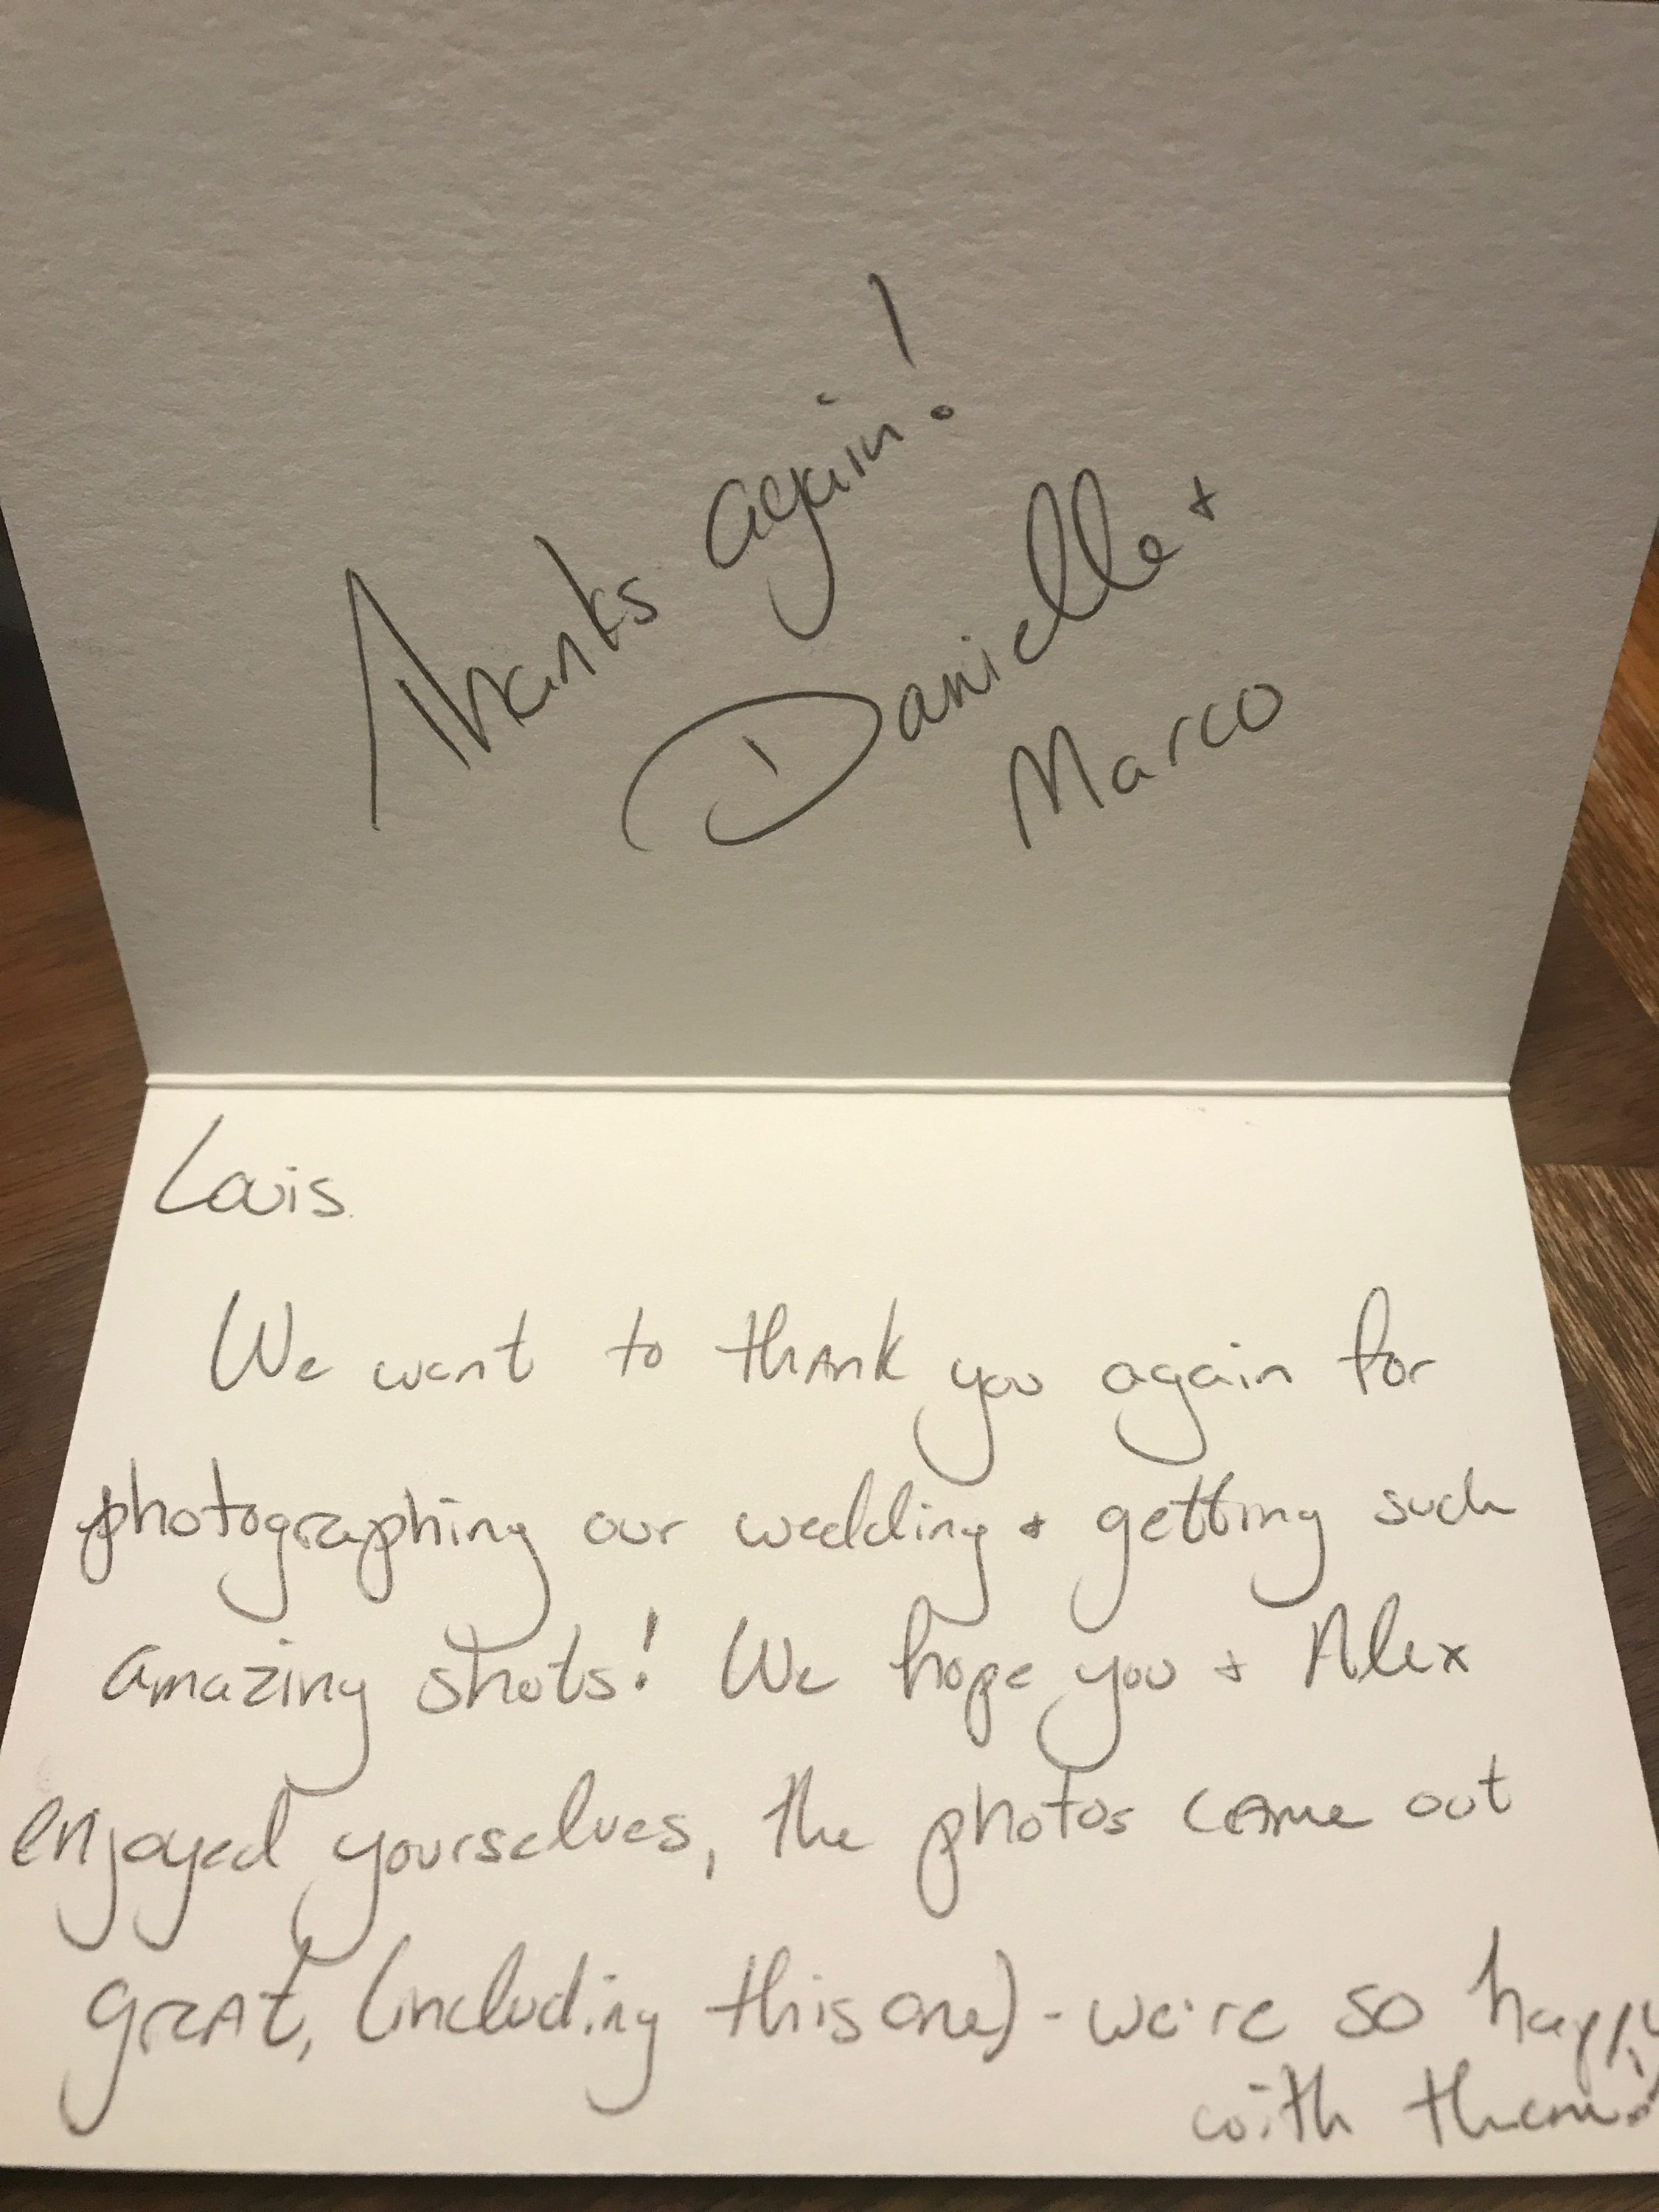 Thanks again!
Danielle +
Marco
Louis
We want to thank you again for
photographing our wedding + getting such
amazing shots! We hope you + Alex
enjoyed yourselves, the photos came out
great, (including this one) - we're so happy
with them!